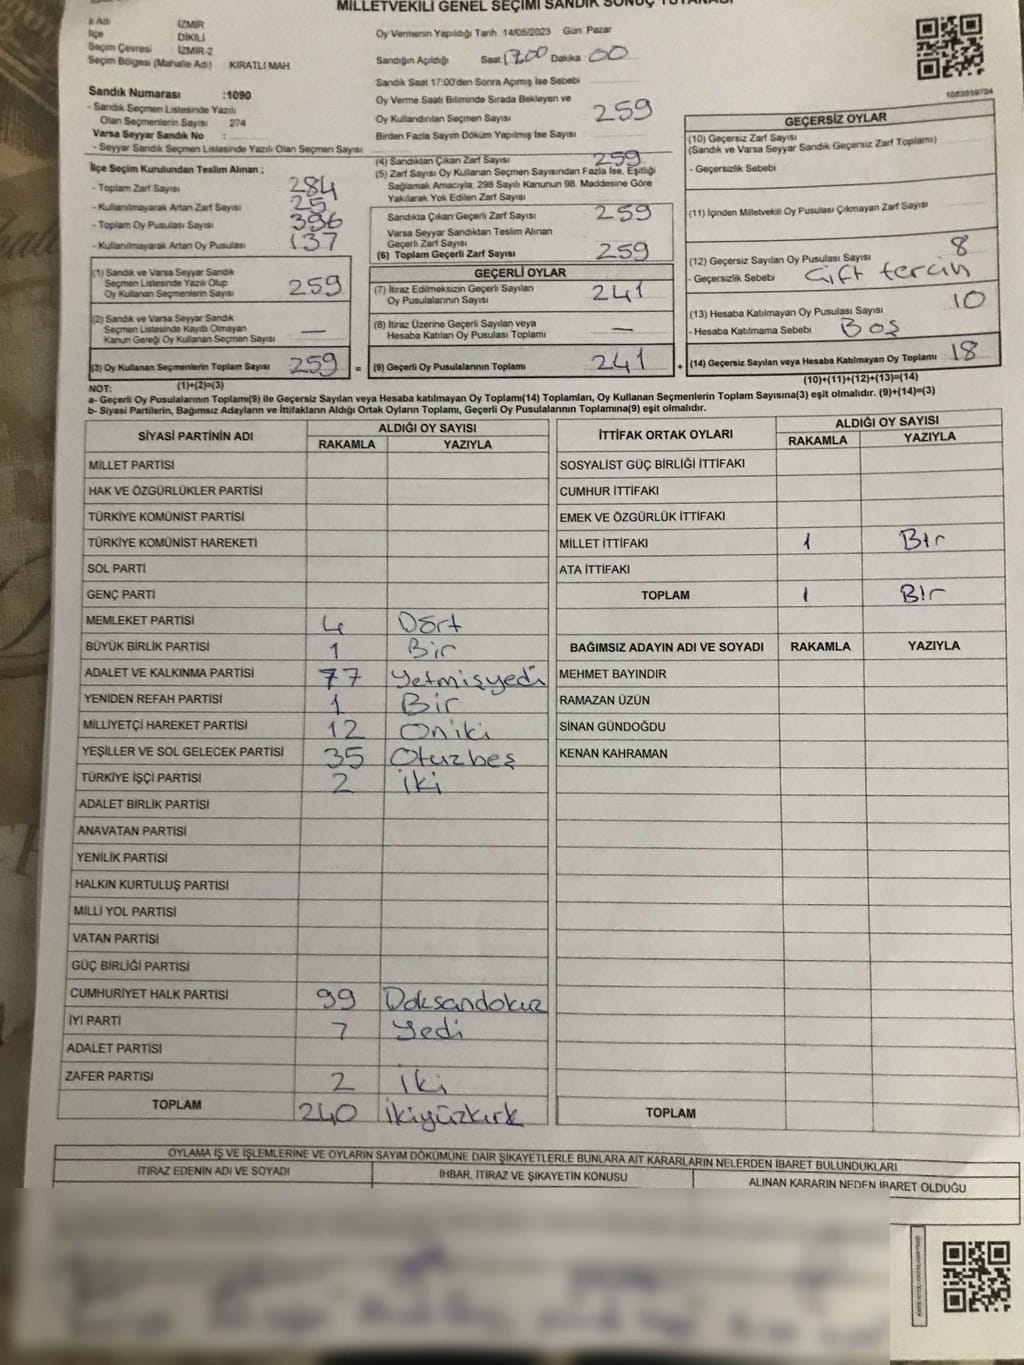 MİLLETVEKİLİ GENEL SEÇİMİ SANDIK SONUÇ TUTANAĞI
İl Adı İZMİR
İlçe DİKİLİ
Seçim Çevresi İZMİR-2
Seçim Bölgesi (Mahalle Adı) KIRATLI MAH.
Sandık Numarası :1090
- Sandık Seçmen Listesinde Yazılı
Olan Seçmenlerin Sayısı : 274
Varsa Seyyar Sandık No :
- Seyyar Sandık Seçmen Listesinde Yazılı Olan Seçmen Sayısı
Oy Vermenin Yapıldığı Tarih :14/05/2023 Gün: Pazar
Sandığın Açıldığı Saat 17.00 Dakika 00
Sandık Saat 17:00'den Sonra Açımış İse Sebebi
Oy Verme Saati Bitiminde Sırada Bekleyen ve
Oy Kullandırılan Seçmen Sayısı 259
Birden Fazla Sayım Döküm Yapılmış İse Sayısı
İlçe Seçim Kurulundan Teslim Alınan ;
- Toplam Zarf Sayısı 284
- Kullanılmayarak Artan Zarf Sayısı 25
- Toplam Oy Pusulası Sayısı 396
- Kullanılmayarak Artan Oy Pusulası 137
(1) Sandık ve Varsa Seyyar Sandık
Seçmen Listesinde Yazılı Olup
Oy Kullanan Seçmenlerin Sayısı 259
(2) Sandık ve Varsa Seyyar Sandık
Seçmen Listesinde Kayıtlı Olmayan
Kanun Gereği Oy Kullanan Seçmen Sayısı —
(3) Oy Kullanan Seçmenlerin Toplam Sayısı 259 =
(4) Sandıktan Çıkan Zarf Sayısı 259
(5) Zarf Sayısı Oy Kullanan Seçmen Sayısından Fazla İse, Eşitliği
Sağlamak Amacıyla; 298 Sayılı Kanunun 98. Maddesine Göre
Yakılarak Yok Edilen Zarf Sayısı
Sandıkta Çıkan Geçerli Zarf Sayısı 259
Varsa Seyyar Sandıktan Teslim Alınan
Geçerli Zarf Sayısı
(6) Toplam Geçerli Zarf Sayısı 259
GEÇERLİ OYLAR
(7) İtiraz Edilmeksizin Geçerli Sayılan
Oy Pusulalarının Sayısı 241
(8) İtiraz Üzerine Geçerli Sayılan veya
Hesaba Katılan Oy Pusulası Toplamı —
(9) Geçerli Oy Pusulalarının Toplamı 241 +
1083859704
GEÇERSİZ OYLAR
(10) Geçersiz Zarf Sayısı
(Sandık ve Varsa Seyyar Sandık Geçersiz Zarf Toplamı)
- Geçersizlik Sebebi
(11) İçinden Milletvekili Oy Pusulası Çıkmayan Zarf Sayısı
(12) Geçersiz Sayılan Oy Pusulası Sayısı 8
- Geçersizlik Sebebi Çift tercih
(13) Hesaba Katılmayan Oy Pusulası Sayısı 10
- Hesaba Katılmama Sebebi Boş
(14) Geçersiz Sayılan veya Hesaba Katılmayan Oy Toplamı 18
NOT: (1)+(2)=(3) (10)+(11)+(12)+(13)=(14)
a- Geçerli Oy Pusulalarının Toplamı(9) ile Geçersiz Sayılan veya Hesaba katılmayan Oy Toplamı(14) Toplamları, Oy Kullanan Seçmenlerin Toplam Sayısına(3) eşit olmalıdır. (9)+(14)=(3)
b- Siyasi Partilerin, Bağımsız Adayların ve İttifakların Aldığı Ortak Oyların Toplamı, Geçerli Oy Pusulalarının Toplamına(9) eşit olmalıdır.
SİYASİ PARTİNİN ADI ALDIĞI OY SAYISI
RAKAMLA YAZIYLA
MİLLET PARTİSİ
HAK VE ÖZGÜRLÜKLER PARTİSİ
TÜRKİYE KOMÜNİST PARTİSİ
TÜRKİYE KOMÜNİST HAREKETİ
SOL PARTİ
GENÇ PARTİ
MEMLEKET PARTİSİ 4 Dört
BÜYÜK BİRLİK PARTİSİ 1 Bir
ADALET VE KALKINMA PARTİSİ 77 Yetmişyedi
YENİDEN REFAH PARTİSİ 1 Bir
MİLLİYETÇİ HAREKET PARTİSİ 12 Oniki
YEŞİLLER VE SOL GELECEK PARTİSİ 35 Otuzbeş
TÜRKİYE İŞÇİ PARTİSİ 2 İki
ADALET BİRLİK PARTİSİ
ANAVATAN PARTİSİ
YENİLİK PARTİSİ
HALKIN KURTULUŞ PARTİSİ
MİLLİ YOL PARTİSİ
VATAN PARTİSİ
GÜÇ BİRLİĞİ PARTİSİ
CUMHURİYET HALK PARTİSİ 99 Doksandokuz
İYİ PARTİ 7 Yedi
ADALET PARTİSİ
ZAFER PARTİSİ 2 İki
TOPLAM 240 İkiyüzkırk
İTTİFAK ORTAK OYLARI ALDIĞI OY SAYISI
RAKAMLA YAZIYLA
SOSYALİST GÜÇ BİRLİĞİ İTTİFAKI
CUMHUR İTTİFAKI
EMEK VE ÖZGÜRLÜK İTTİFAKI
MİLLET İTTİFAKI 1 Bir
ATA İTTİFAKI
TOPLAM 1 Bir
BAĞIMSIZ ADAYIN ADI VE SOYADI RAKAMLA YAZIYLA
MEHMET BAYINDIR
RAMAZAN ÜZÜN
SİNAN GÜNDOĞDU
KENAN KAHRAMAN
TOPLAM
OYLAMA İŞ VE İŞLEMLERİNE VE OYLARIN SAYIM DÖKÜMÜNE DAİR ŞİKAYETLERLE BUNLARA AİT KARARLARIN NELERDEN İBARET BULUNDUKLARI
İTİRAZ EDENİN ADI VE SOYADI İHBAR, İTİRAZ VE ŞİKAYETİN KONUSU ALINAN KARARIN NEDEN İBARET OLDUĞU